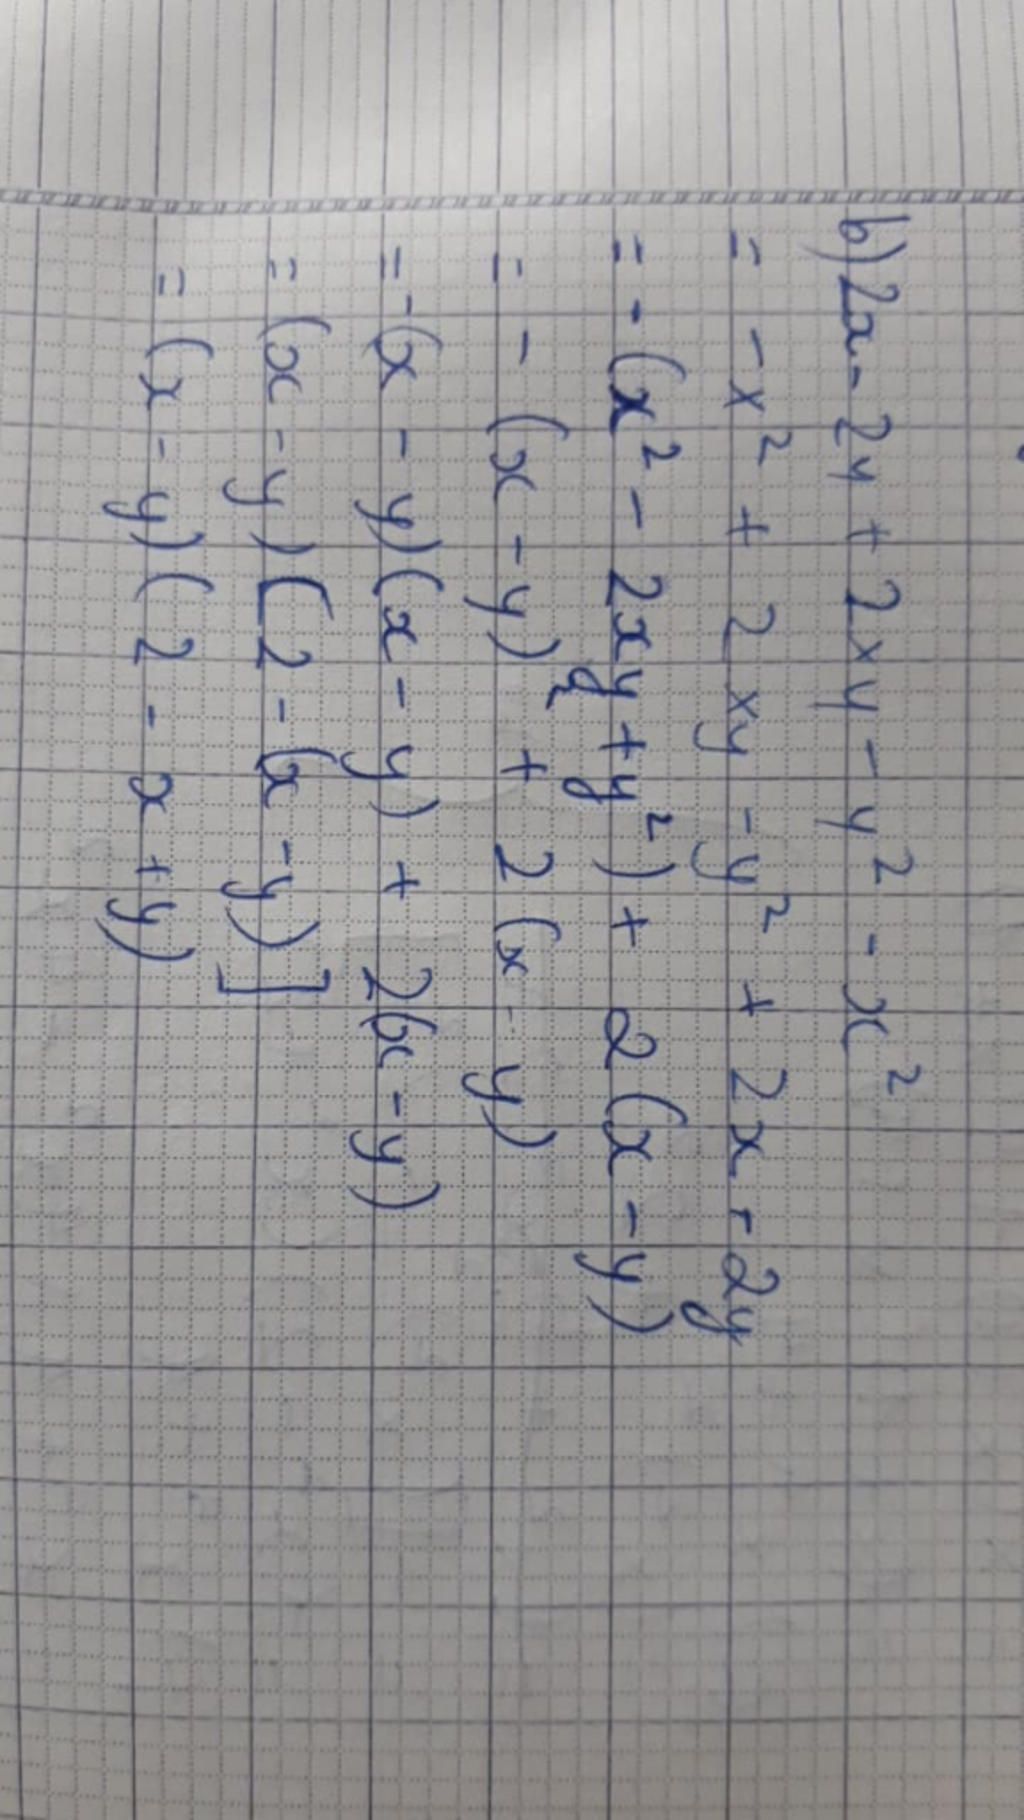 b) 2x - 2y + 2xy - y² - x²
= -x² + 2xy - y² + 2x - 2y
= -(x² - 2xy + y²) + 2(x - y)
= - (x - y)² + 2(x - y)
= -(x - y)(x - y) + 2(x - y)
= (x - y)[2 - (x - y)]
= (x - y)(2 - x + y)